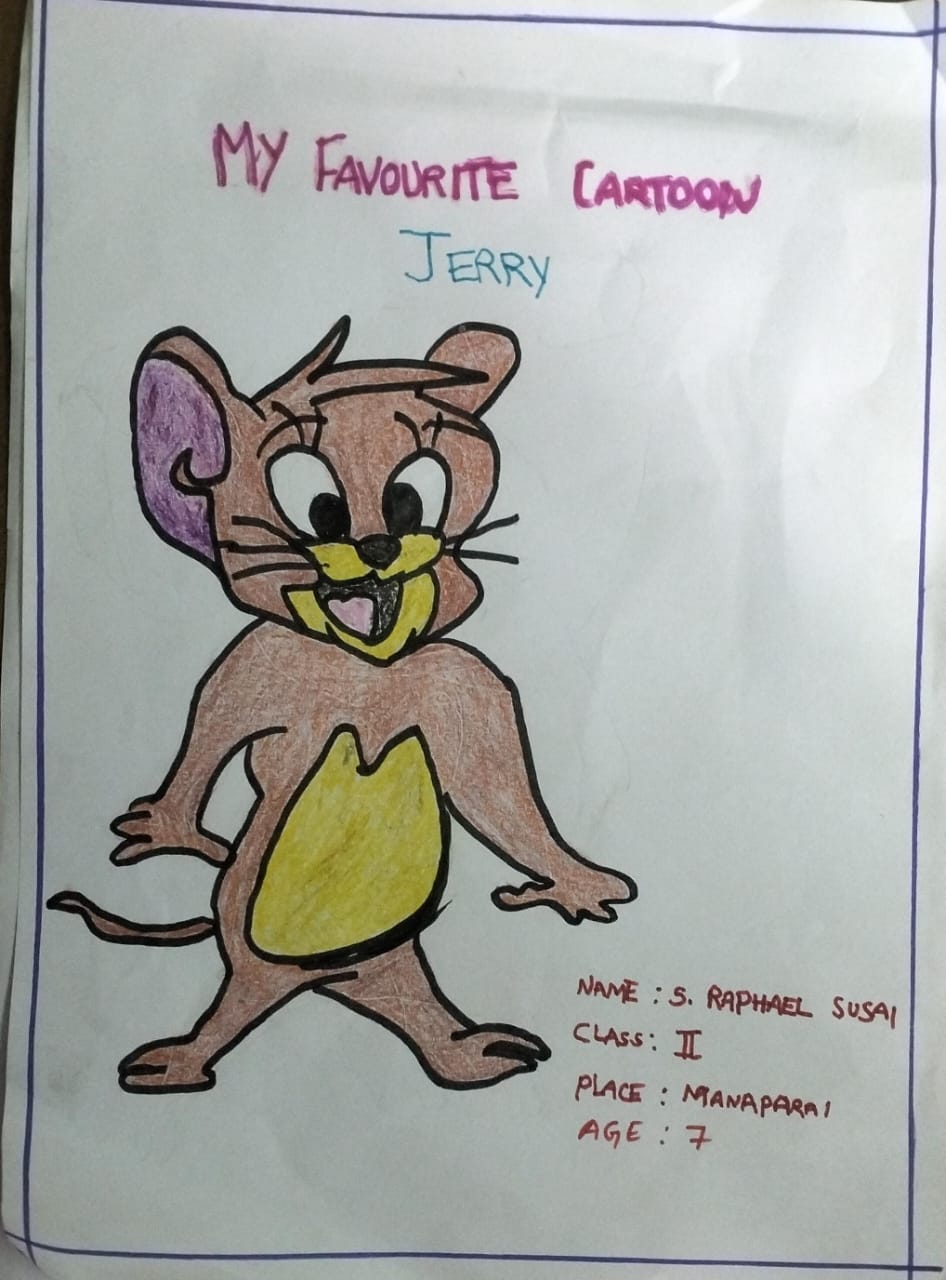 MY FAVOURITE CARTOON
JERRY
NAME : S. RAPHAEL SUSAI
CLASS : II
PLACE : MANAPARAI
AGE : 7